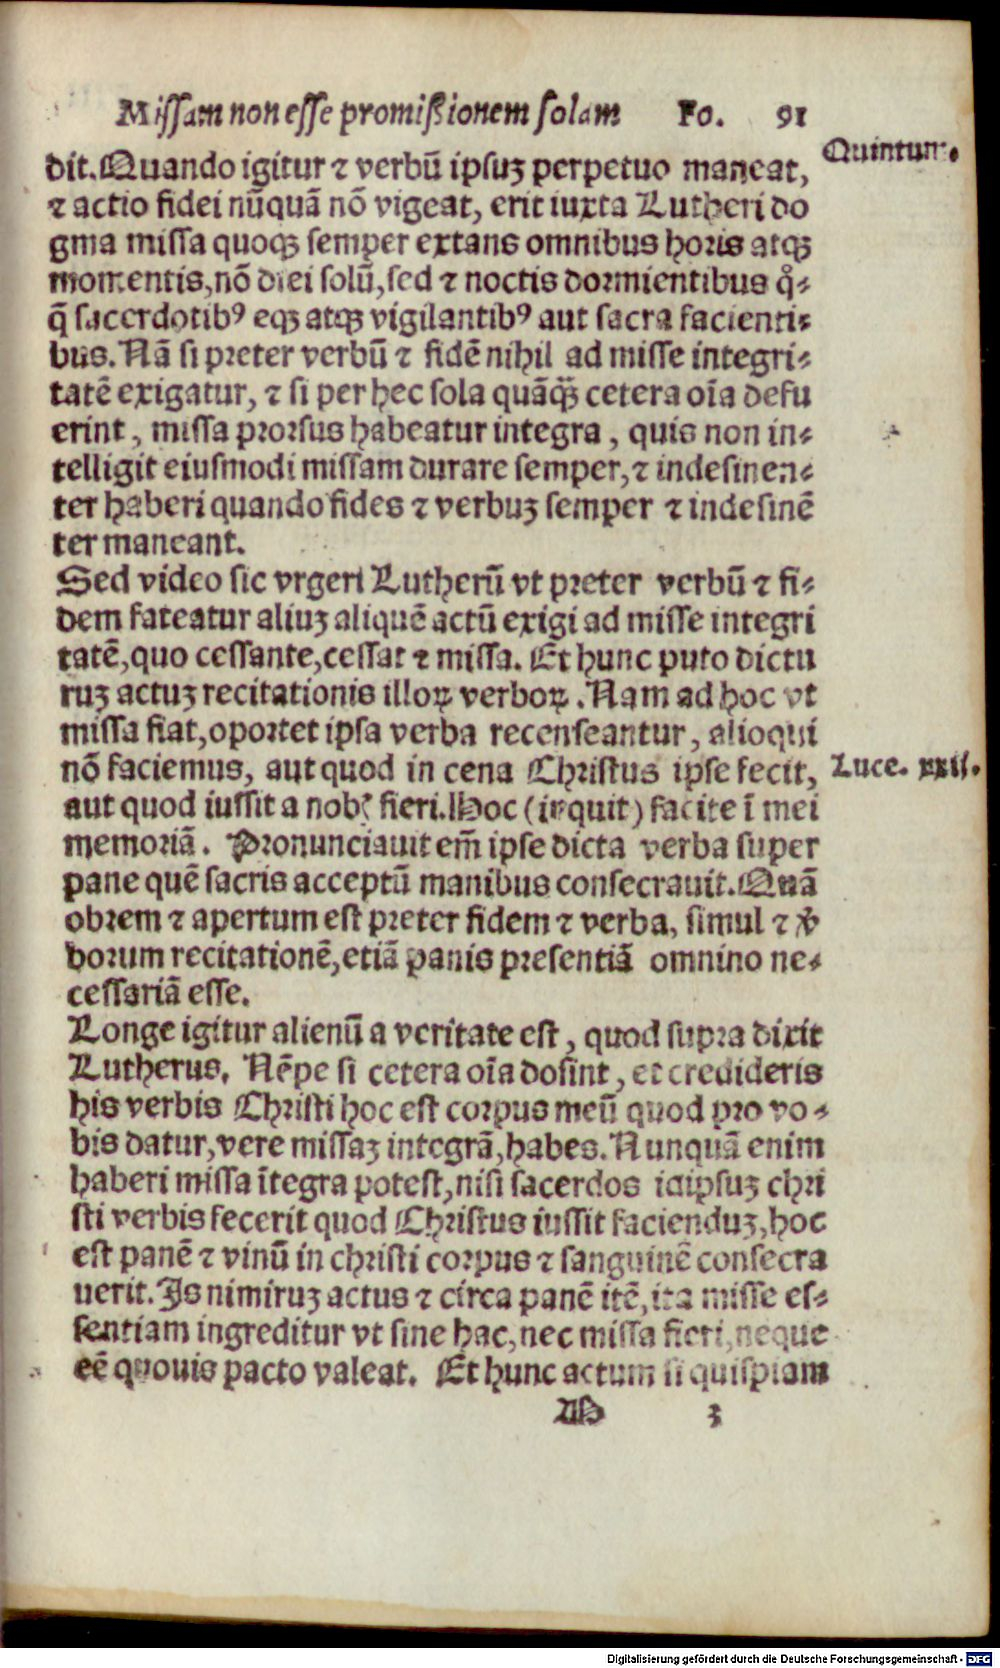 Missam non esse promißionem solam Fo. 91
dit. Quando igitur ⁊ verbũ ipsuȝ perpetuo maneat,
Quintum.
⁊ actio fidei nũquã nõ vigeat, erit iuxta Lutheri do
gma missa quoqȝ semper extans omnibus horis atqȝ
momentis, nõ diei solũ, sed ⁊ noctis dormientibus qͦ⸗
q̃ sacerdotibꝰ eqȝ atqȝ vigilantibꝰ aut sacra facienti⸗
bus. Nã si preter verbũ ⁊ fidẽ nihil ad misse integri⸗
tatẽ exigatur, ⁊ si per hec sola quãqȝ̃ cetera oĩa defu
erint, missa prorsus habeatur integra, quis non in⸗
telligit eiusmodi missam durare semper, ⁊ indesinen⸗
ter haberi quando fides ⁊ verbuȝ semper ⁊ indesinẽ
ter maneant.
Sed video sic vrgeri Lutherũ vt preter verbũ ⁊ fi⸗
dem fateatur aliuȝ aliquẽ actũ exigi ad misse integri
tatẽ, quo cessante, cessat ⁊ missa. Et hunc puto dictu
ruȝ actuȝ recitationis illoꝝ verboꝝ. Nam ad hoc vt
missa fiat, oportet ipsa verba recenseantur, alioqui
nõ faciemus, aut quod in cena Christus ipse fecit,
Luce. xxij.
aut quod iussit a nob̉ fieri. Hoc (inquit) facite ĩ mei
memoriã. Pronunciauit em̃ ipse dicta verba super
pane quẽ sacris acceptũ manibus consecrauit. Quã
obrem ⁊ apertum est preter fidem ⁊ verba, simul ⁊ v̾
borum recitationẽ, etiã panis presentiã omnino ne⸗
cessariã esse.
Longe igitur alienũ a veritate est, quod supra dixit
Lutherus. Nẽpe si cetera oĩa dosint, et credideris
his verbis Christi hoc est corpus meũ quod pro vo⸗
bis datur, vere missaȝ integrã, habes. Nunquã enim
haberi missa ĩtegra potest, nisi sacerdos idipsuȝ chri
sti verbis fecerit quod Christus iussit facienduȝ, hoc
est panẽ ⁊ vinũ in christi corpus ⁊ sanguinẽ consecra
uerit. Is nimiruȝ actus ⁊ circa panẽ itẽ, ita misse es⸗
sentiam ingreditur vt sine hac, nec missa fieri, neque
eẽ quouis pacto valeat. Et hunc actum si quispiam
H 3
Digitalisierung gefördert durch die Deutsche Forschungsgemeinschaft - DFG